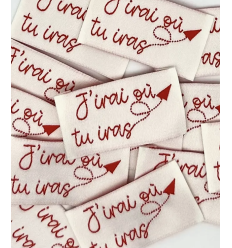 J'irai où
tu iras
J'irai où
tu iras
J'irai où
tu iras
J'irai où
tu iras
J'irai où
tu iras